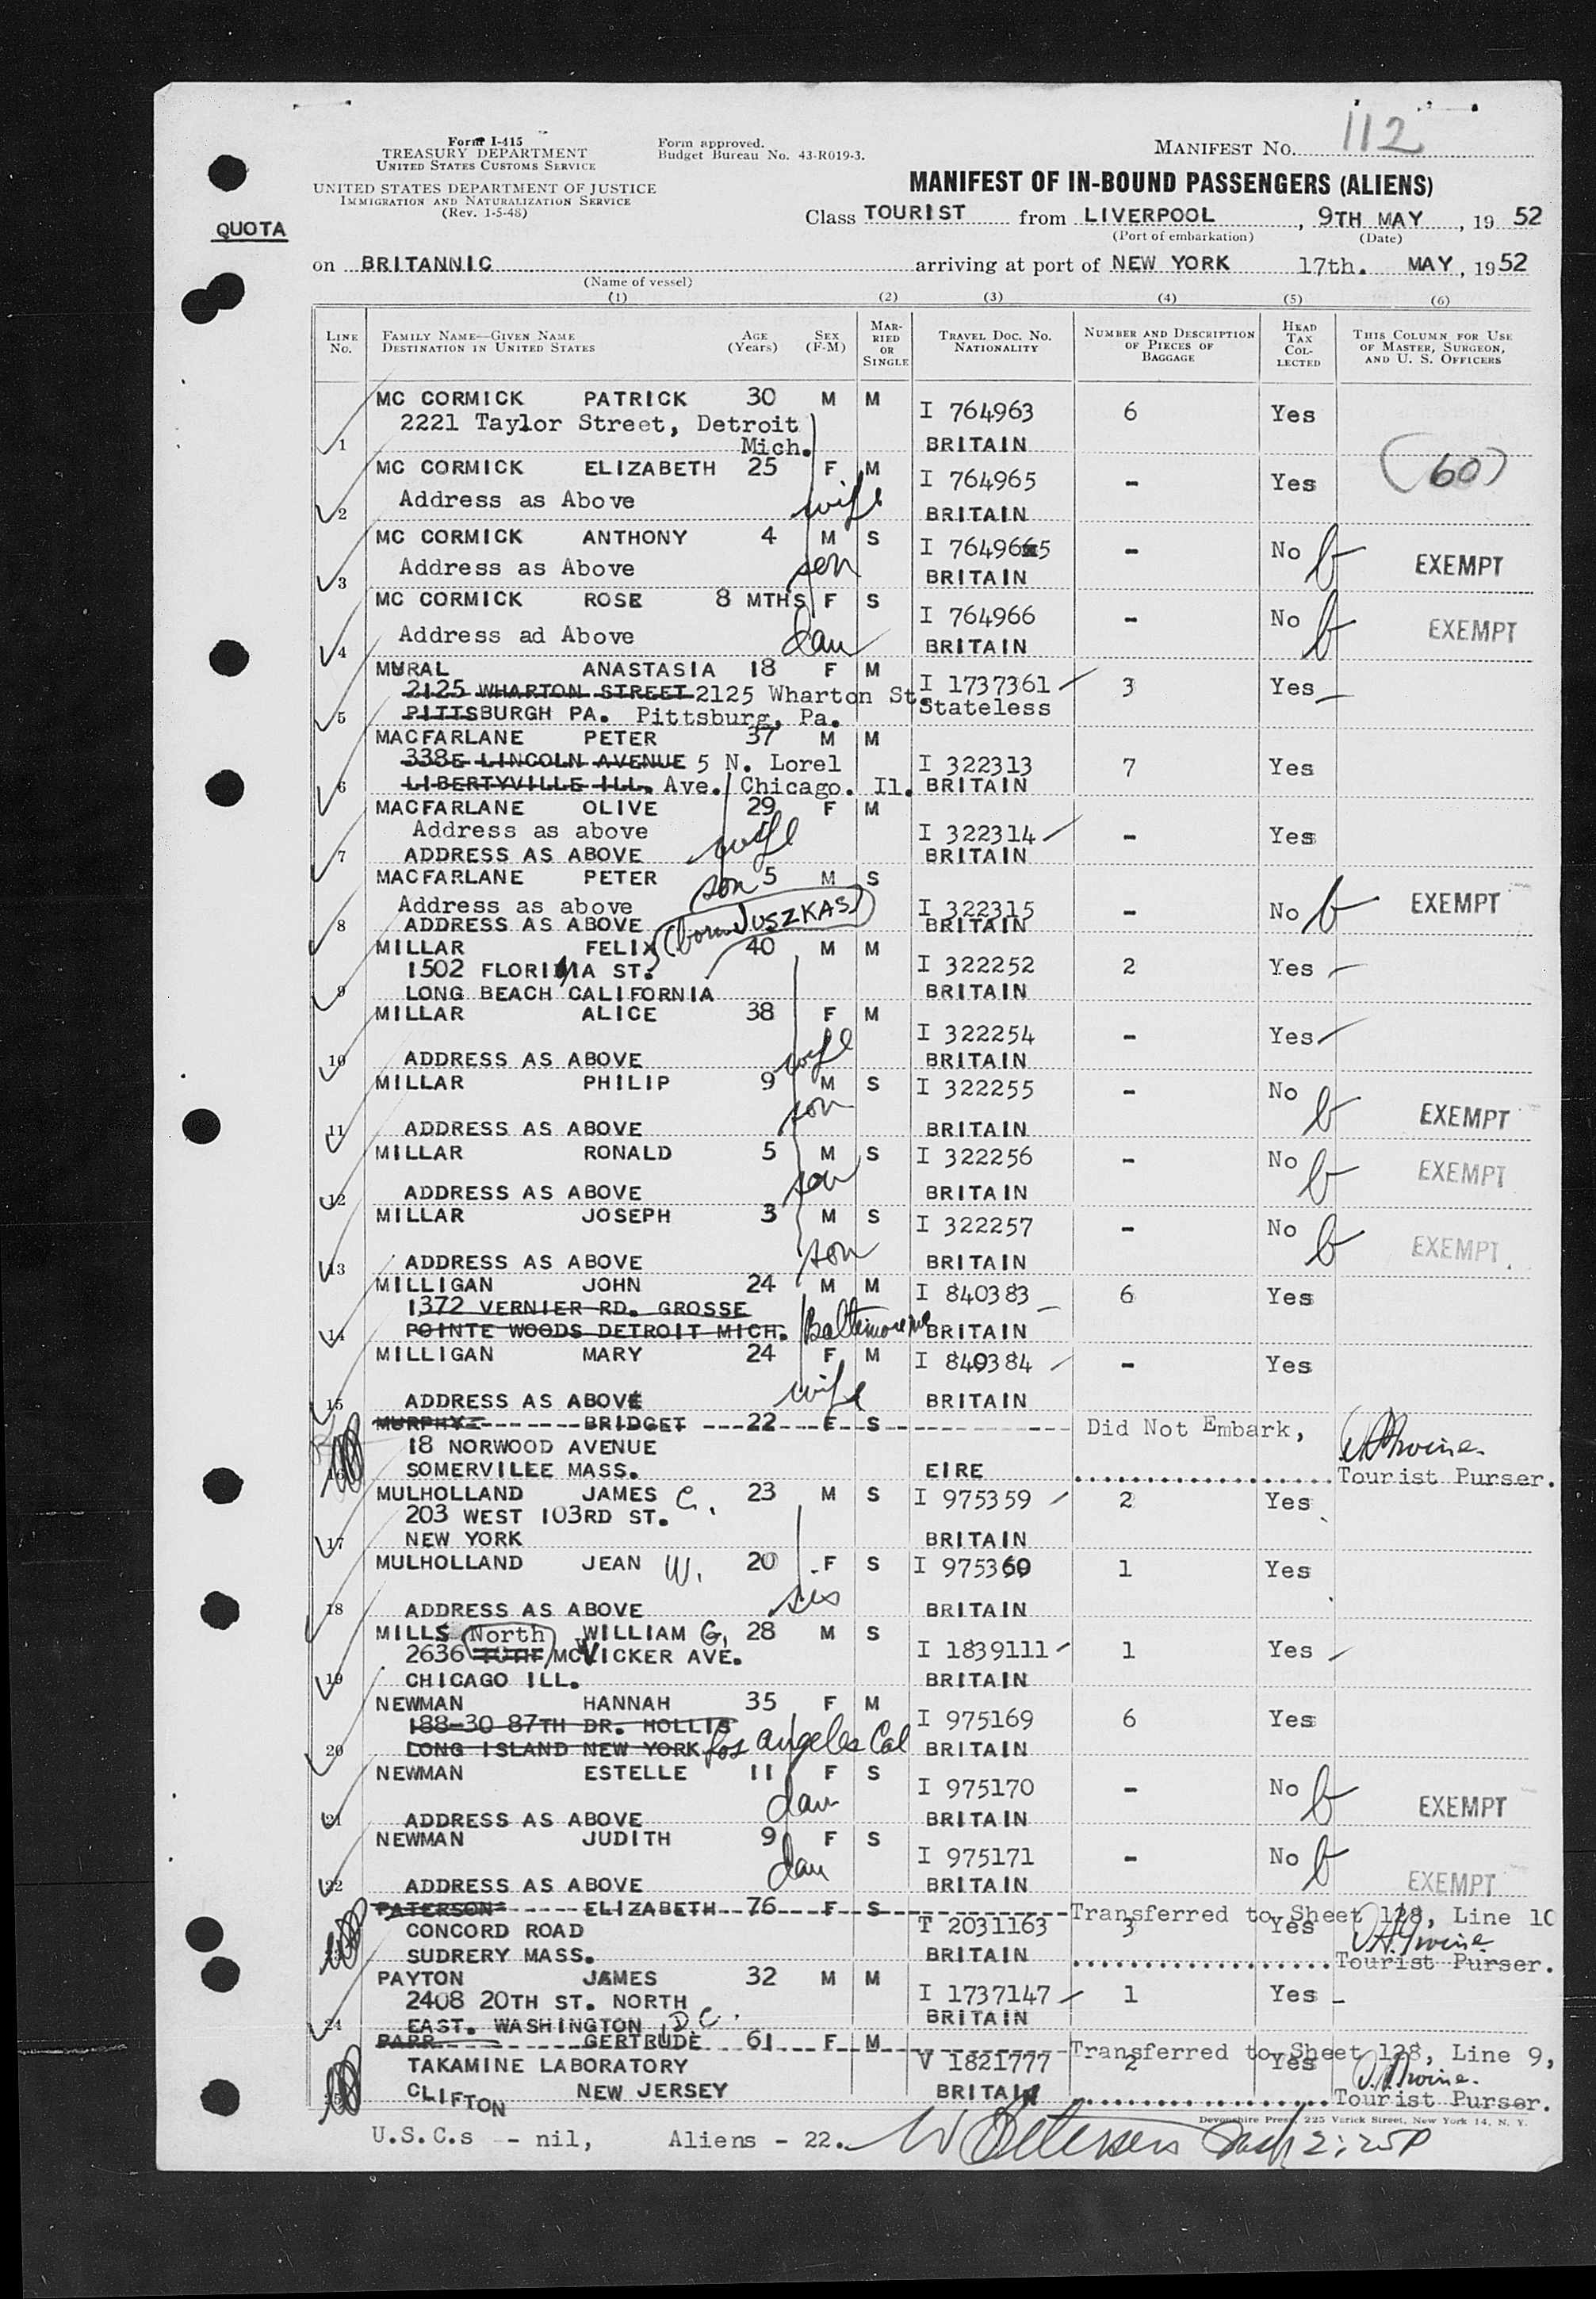 112
Form I-415
TREASURY DEPARTMENT
UNITED STATES CUSTOMS SERVICE
Form approved.
Budget Bureau No. 43-R019-3.
MANIFEST No.
UNITED STATES DEPARTMENT OF JUSTICE
IMMIGRATION AND NATURALIZATION SERVICE
(Rev. 1-5-48)
MANIFEST OF IN-BOUND PASSENGERS (ALIENS)
QUOTA
Class TOURIST from LIVERPOOL , 9TH MAY , 19 52
(Port of embarkation) (Date)
on BRITANNIC arriving at port of NEW YORK 17th. MAY , 19 52
(Name of vessel)
(1) (2) (3) (4) (5) (6)
LINE No. FAMILY NAME—GIVEN NAME DESTINATION IN UNITED STATES AGE (Years) SEX (F-M) MARRIED OR SINGLE TRAVEL DOC. No. NATIONALITY NUMBER AND DESCRIPTION OF PIECES OF BAGGAGE HEAD TAX COLLECTED THIS COLUMN FOR USE OF MASTER, SURGEON, AND U. S. OFFICERS
MC CORMICK PATRICK 30 M M I 764963 6 Yes
2221 Taylor Street, Detroit
1 Mich. BRITAIN
MC CORMICK ELIZABETH 25 F M I 764965 - Yes (60)
Address as Above wife
2 BRITAIN
MC CORMICK ANTHONY 4 M S I 764965 - No b EXEMPT
Address as Above son
3 BRITAIN
MC CORMICK ROSE 8 MTHS F S I 764966 - No b EXEMPT
Address ad Above dau
4 BRITAIN
MURAL ANASTASIA 18 F M I 1737361 3 Yes
2125 WHARTON STREET 2125 Wharton St. Stateless
5 PITTSBURGH PA. Pittsburg, Pa.
MACFARLANE PETER 37 M M
338E LINCOLN AVENUE 5 N. Lorel I 322313 7 Yes
6 LIBERTYVILLE ILL. Ave. Chicago. Il. BRITAIN
MACFARLANE OLIVE 29 F M
Address as above wife I 322314 - Yes
7 ADDRESS AS ABOVE BRITAIN
MACFARLANE PETER son 5 M S
Address as above I 322315 - No b EXEMPT
8 ADDRESS AS ABOVE BRITAIN
(born JUSZKAS)
MILLAR FELIX 40 M M
1502 FLORIDA ST. I 322252 2 Yes
9 LONG BEACH CALIFORNIA BRITAIN
MILLAR ALICE 38 F M
I 322254 - Yes
10 ADDRESS AS ABOVE wife BRITAIN
MILLAR PHILIP 9 M S I 322255 - No b EXEMPT
son
11 ADDRESS AS ABOVE BRITAIN
MILLAR RONALD 5 M S I 322256 - No b EXEMPT
son
12 ADDRESS AS ABOVE BRITAIN
MILLAR JOSEPH 3 M S I 322257 - No b EXEMPT
son
13 ADDRESS AS ABOVE BRITAIN
MILLIGAN JOHN 24 M M I 840383 6 Yes
1372 VERNIER RD. GROSSE
14 POINTE WOODS DETROIT MICH. Baltimore BRITAIN
MILLIGAN MARY 24 F M I 840384 - Yes
wife
15 ADDRESS AS ABOVE BRITAIN
MURPHY BRIDGET 22 F S Did Not Embark,
18 NORWOOD AVENUE
16 SOMERVILEE MASS. EIRE Tourist Purser.
MULHOLLAND JAMES C. 23 M S I 975359 2 Yes
203 WEST 103RD ST.
17 NEW YORK BRITAIN
MULHOLLAND JEAN W. 20 F S I 975360 1 Yes
sis
18 ADDRESS AS ABOVE BRITAIN
MILLS WILLIAM G. 28 M S
2636 10TH North MCVICKER AVE. I 1839111 1 Yes
19 CHICAGO ILL. BRITAIN
NEWMAN HANNAH 35 F M
188-30 87TH DR. HOLLIS I 975169 6 Yes
20 LONG ISLAND NEW YORK Los Angeles Cal BRITAIN
NEWMAN ESTELLE 11 F S I 975170 - No b EXEMPT
dau
21 ADDRESS AS ABOVE BRITAIN
NEWMAN JUDITH 9 F S I 975171 - No b EXEMPT
dau
22 ADDRESS AS ABOVE BRITAIN
PATERSON ELIZABETH 76 F S Transferred to Sheet 128, Line 10
CONCORD ROAD T 2031163 3 Yes
23 SUDRERY MASS. BRITAIN Tourist Purser.
PAYTON JAMES 32 M M
2408 20TH ST. NORTH I 1737147 1 Yes
24 EAST. WASHINGTON D C. BRITAIN
PARR GERTRUDE 61 F M Transferred to Sheet 128, Line 9,
TAKAMINE LABORATORY V 1821777 2 Yes
25 CLIFTON NEW JERSEY BRITAIN Tourist Purser.
Devonshire Press, 225 Varick Street, New York 14, N. Y.
U.S.C.s - nil, Aliens - 22. 2:25P